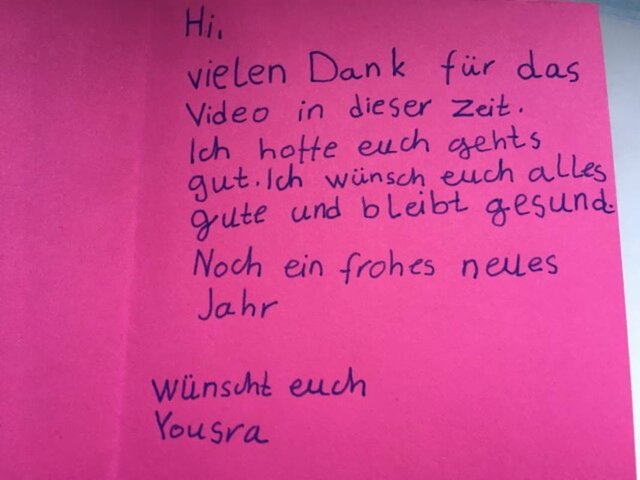 Hi,
vielen Dank für das
Video in dieser Zeit.
Ich hoffe euch gehts
gut. Ich wünsch euch alles
gute und bleibt gesund.
Noch ein frohes neues
Jahr
wünscht euch
Yousra